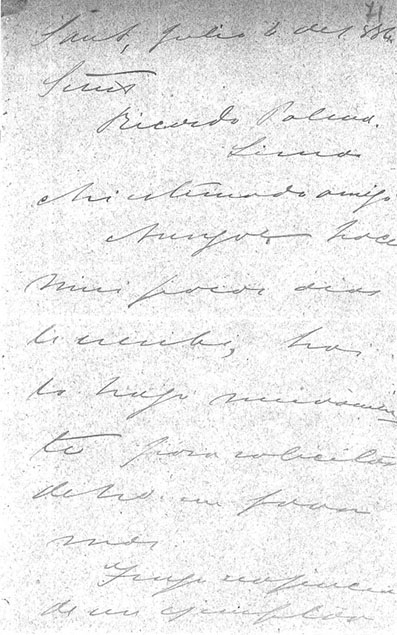 71
Sant, Julio 6 de 1886.
Señor
Ricardo Palma.
Lima
Mi estimado amigo
Aunque hace
mui pocos dias
le escribi, hoi
lo hago nuevamen
te para solicitar
de Ud. un favor
mas.
Tengo urjencia
de un ejemplar